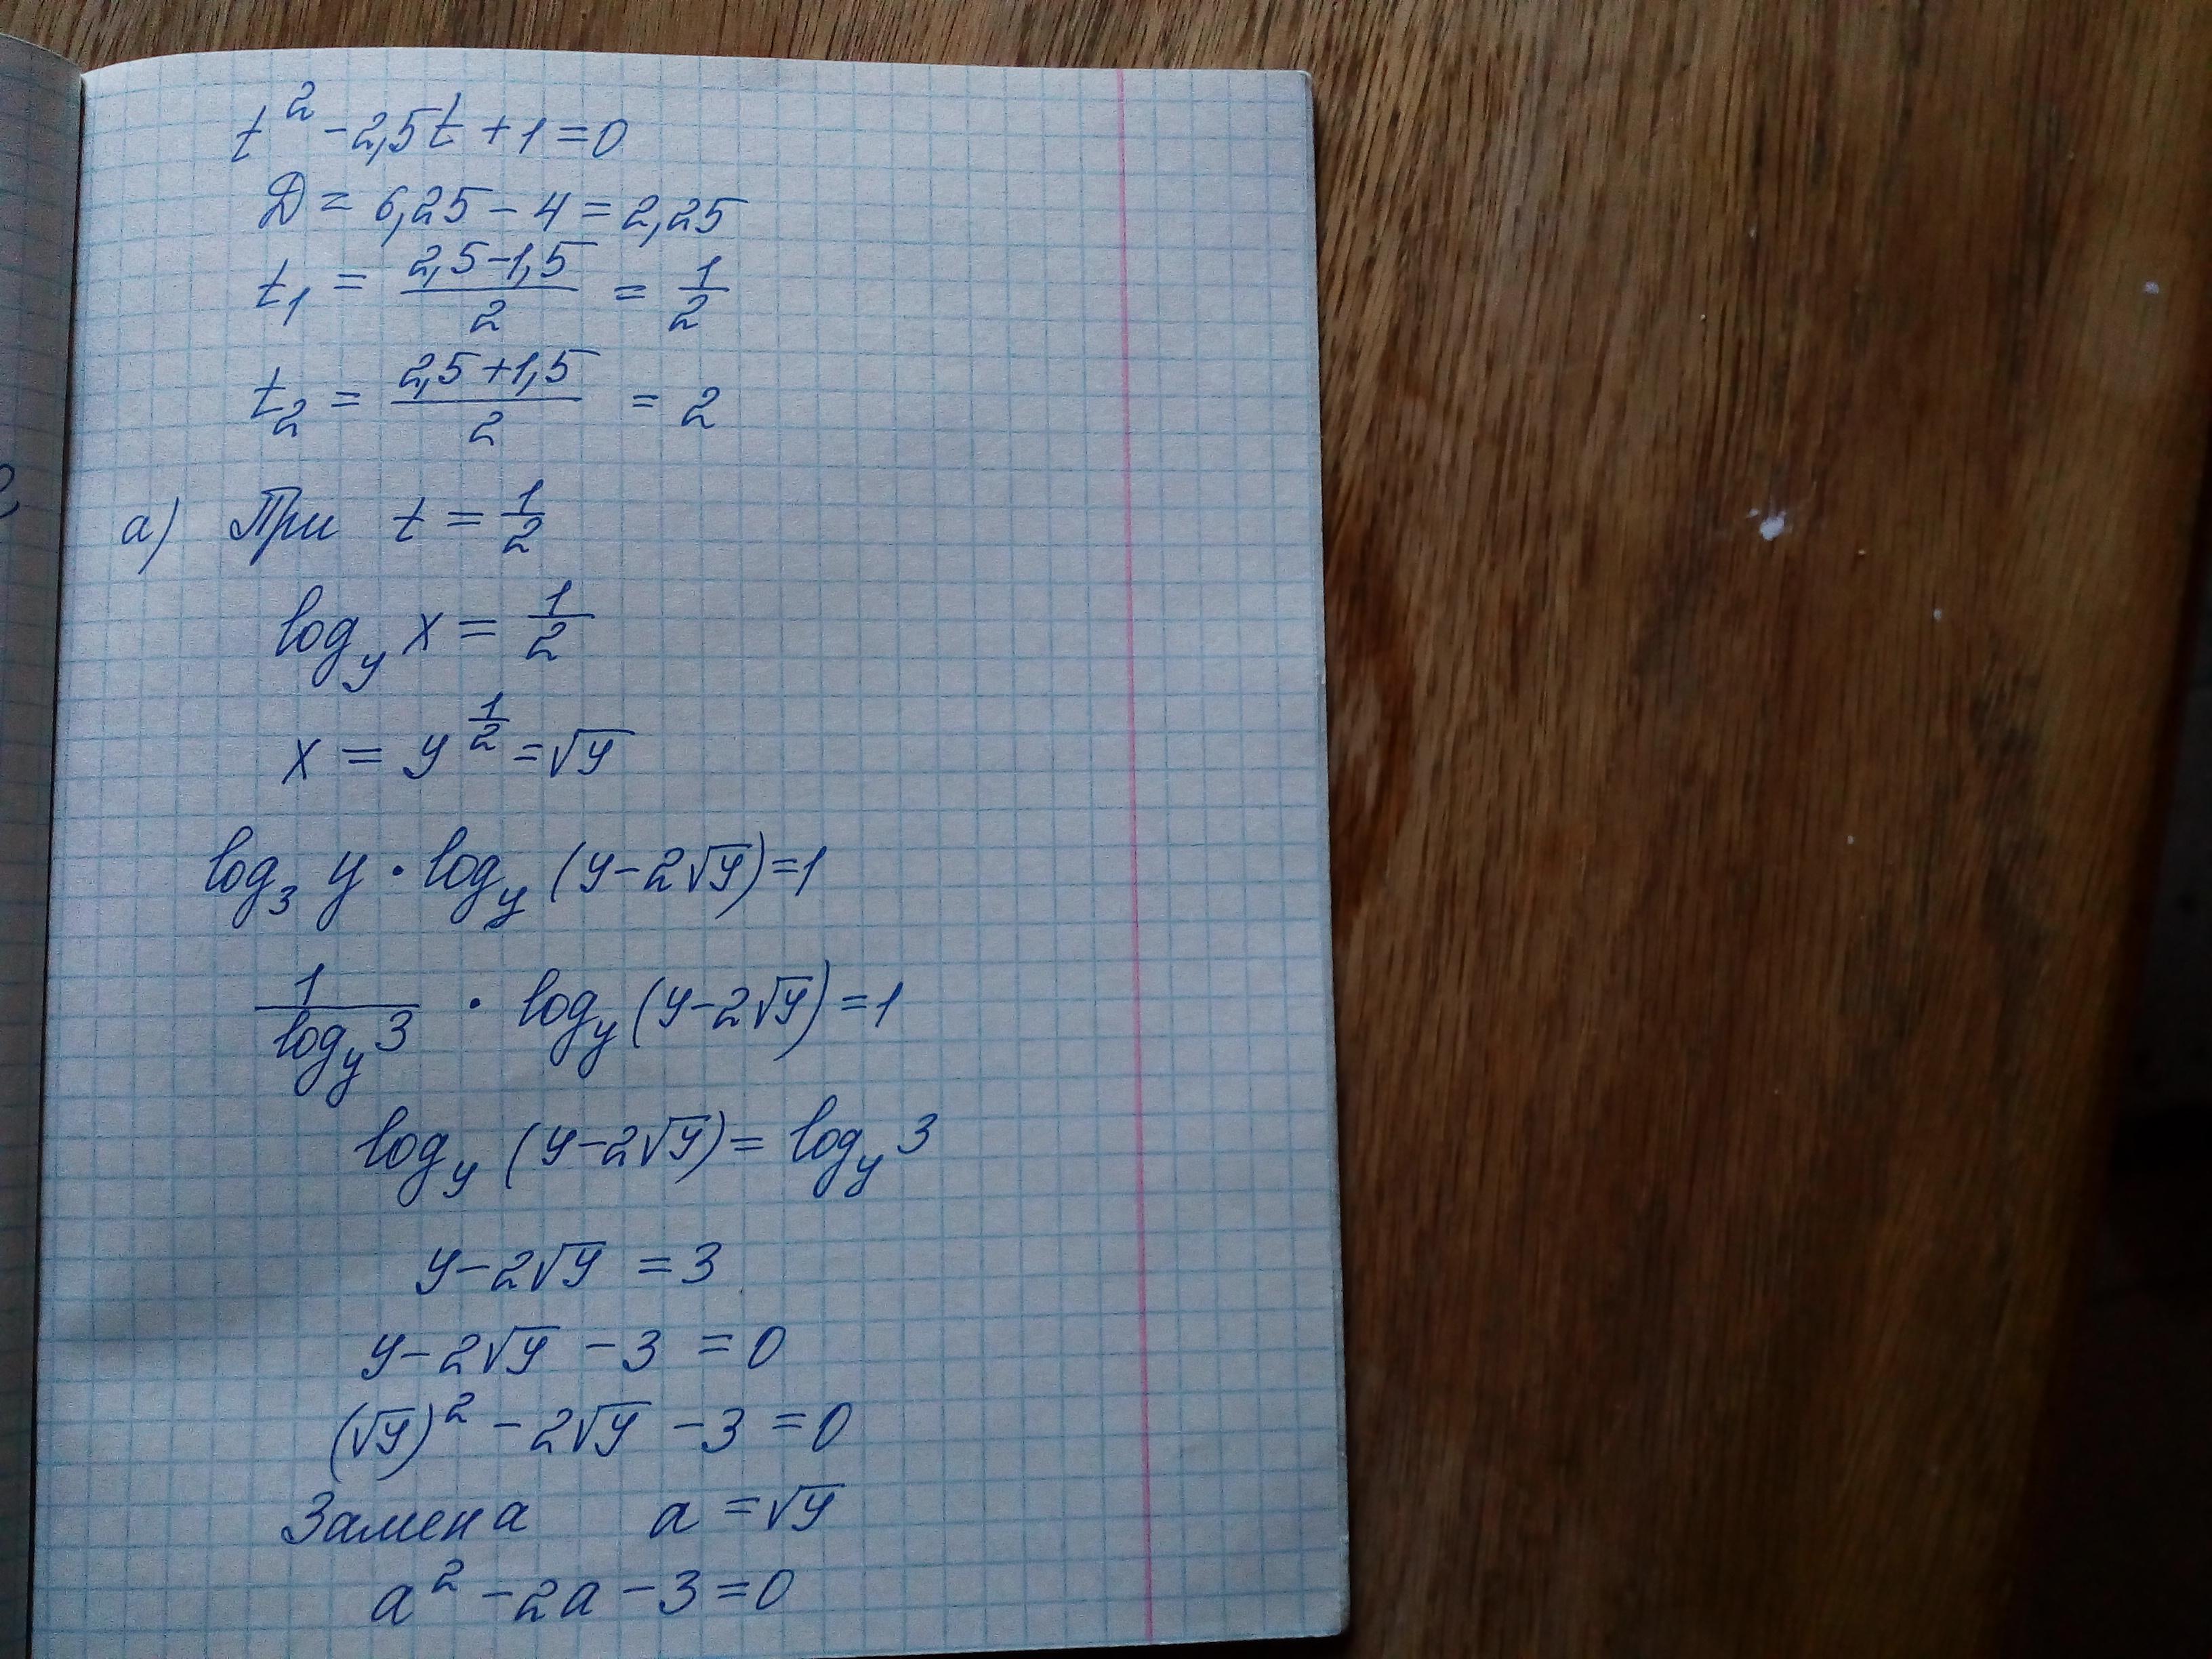 t² - 2,5t + 1 = 0
Д = 6,25 - 4 = 2,25
t₁ = (2,5 - 1,5)/2 = 1/2
t₂ = (2,5 + 1,5)/2 = 2
а) При t = 1/2
log_y x = 1/2
x = y^(1/2) = √y
log₃ y · log_y (y - 2√y) = 1
1/(log_y 3) · log_y (y - 2√y) = 1
log_y (y - 2√y) = log_y 3
y - 2√y = 3
y - 2√y - 3 = 0
(√y)² - 2√y - 3 = 0
Замена a = √y
a² - 2a - 3 = 0